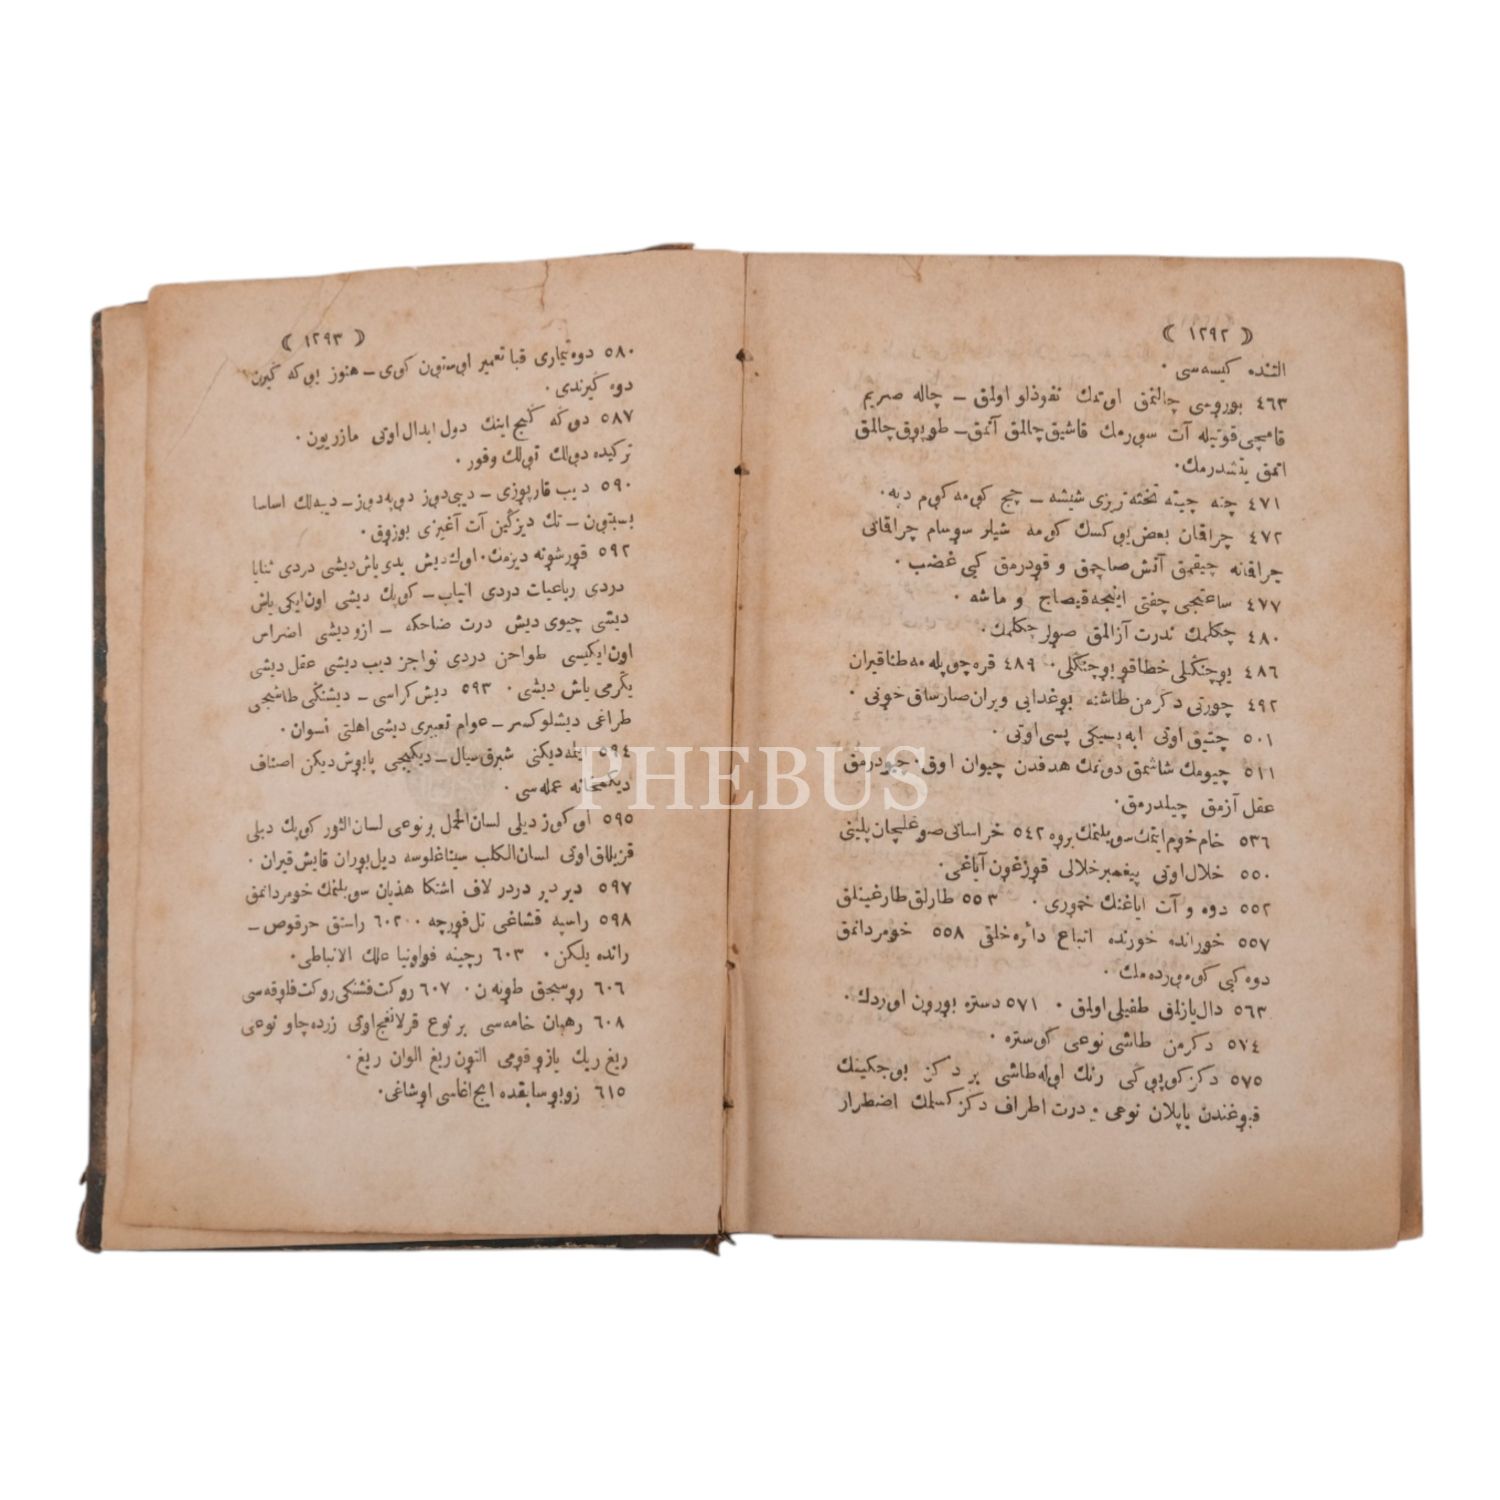 ﴾ ١٢٩٢ ﴿
التنده كيسه سی ٠
٤٦٣ بوروسی چالنمق اوتمك نفوذلو اولمق — چاله صريم
قامچی قوتيله آت سورمك قاشيق چالمق آتمق — طوپوق چالمق
اتمق يتشدرمك ٠
٤٧١ چنه چيته تخته زيزی شيشه — چج كومه كوم دپه ٠
٤٧٢ چراقان بعض يوكسك كومه شيلر سوسام چراقانی
چراقانه چيقمق آتش صاچمق و قودرمق كبی غضب ٠
٤٧٧ ساعتجی چفتی اينجه قيصاج و ماشه ٠
٤٨٠ چكلمك ندرت آزالمق صولر چكلمك ٠
٤٨٦ يوچنكلی خطاقو بوچنكلی ٠ ٤٨٩ قره چوپله مه طناقيران
٤٩٢ چورتی دكرمن طاشنه بوغدايی ويران صارساق خونی ٠
٥٠١ چتيق اوتی ابه پسيكی پسی اوتی ٠
٥١١ چيومك شاشمق دونمك هدفدن چيوان اوق ٠ چيودرمق
عقل آزمق چيلدرمق ٠
٥٣٦ خام خوم ايتمك سويلنمك بروه ٥٤٢ خراسانی صوغليجان پلينی
٥٥٠ خلال اوتی پيغمبر خلالی قوزغون آياغی ٠
٥٥٢ دوه و آت اياغنك خموری ٠ ٥٥٣ طارلق طارغينلق
٥٥٧ خورانده خورنده اتباع دائره خلقی ٥٥٨ خومردانمق
دوه كبی كوموردەمك ٠
٥٦٣ دال يازلق طفيلی اولمق ٠ ٥٧١ دستره بورون اوردك ٠
٥٧٤ دكرمن طاشی نوعی كوستره ٠
٥٧٥ دكز كوپوكی رنك اوله طاشی بر دكز بوجكينك
قبوغندن ياپلان نوعی ٠ درت اطراف دكز كسلمك اضطرار
﴾ ١٢٩٣ ﴿
٥٨٠ دوه تيماری قبا تعمير اوستون كوی — هنوز بوكه كيرن
دوه كيرندی ٠
٥٨٧ دوكه كيج اينك دول ابدال اوتی مازريون ٠
تركيده دولك تولك وقور ٠
٥٩٠ ديب قارپوزی — ديبی دوز دوپه دوز — ديبه لك اساسا
بسبتون — تك ديزكين آت آغيزی بوزوق ٠
٥٩٢ قورشونه ديزمك ٠ اوك ديش يدی ياش ديشی دردی ثنايا
دردی رباعيات دردی انياب — كوپك ديشی اون ايكی ياش
ديشی چيوی ديش درت ضاحكه — ازو ديشی اضراس
اون ايكيسی طواحن دردی نواجز ديب ديشی عقل ديشی
يكرمی ياش ديشی ٠ ٥٩٣ ديش كراسی — ديشنكی طاشجی
طراغی ديشلو كسر — عوام تعبيری ديشی اهلتی نسوان ٠
٥٩٤ ديكنی شبرق سيال — ديكيجی پابوش ديكن اصناف
ديكمخانه عمله سی ٠
٥٩٥ اوكوز ديلی لسان الحمل بر نوعی لسان الثور كوپك ديلی
قزيللاق اوتی لسان الكلب سيناغلوسه ديل بوران قايش قيران ٠
٥٩٧ ديردير دردر لاف اشتكا هذيان سويلنمك خومردانمق
٥٩٨ راسپه قشاغی تل فورچه ٦٠٢٠٠ راستق حرقوص —
رانده يلكن ٠ ٦٠٣ رچينه فواونيا علك الانباطی ٠
٦٠٦ روسجق طونه ن ٠ ٦٠٧ روكت فشنكی روكت فلوقه سی
٦٠٨ رهبان خامه سی بر نوع قرلانغج اوتی زرده چاو نوعی
ريغ ريك يازو قومی التون ريغ الوان ريغ ٠
٦١٥ زوبو سابقده ايچ اغاسی اوشاغی ٠
PHEBUS